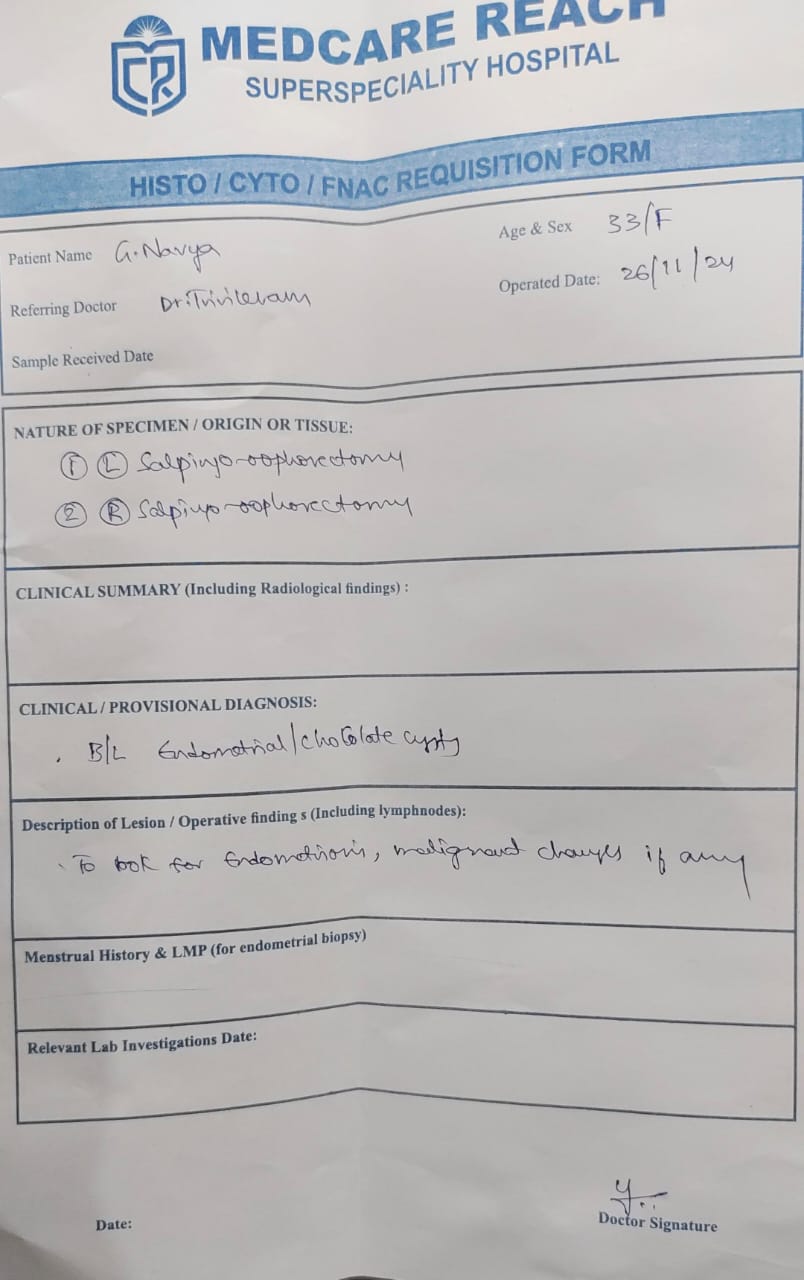 MEDCARE REACH
SUPERSPECIALITY HOSPITAL
HISTO / CYTO / FNAC REQUISITION FORM
Patient Name G. Navya
Age & Sex 33/F
Referring Doctor Dr.
Operated Date: 26/11/24
Sample Received Date
NATURE OF SPECIMEN / ORIGIN OR TISSUE:
① Ⓛ Salpingo-oophorectomy
② Ⓡ Salpingo-oophorectomy
CLINICAL SUMMARY (Including Radiological findings) :
CLINICAL / PROVISIONAL DIAGNOSIS:
. B/L Endometrial/chocolate cysts
Description of Lesion / Operative finding s (Including lymphnodes):
. To look for Endometriosis, malignant changes if any
Menstrual History & LMP (for endometrial biopsy)
Relevant Lab Investigations Date:
Date:
Doctor Signature